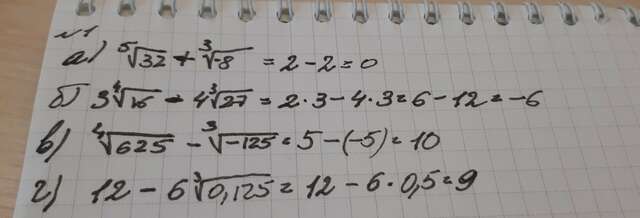 №1
а) ⁵√32 + ³√-8 = 2 - 2 = 0
б) 3⁴√16 - 4³√27 = 2·3 - 4·3 = 6 - 12 = -6
в) ⁴√625 - ³√-125 = 5 - (-5) = 10
г) 12 - 6³√0,125 = 12 - 6·0,5 = 9